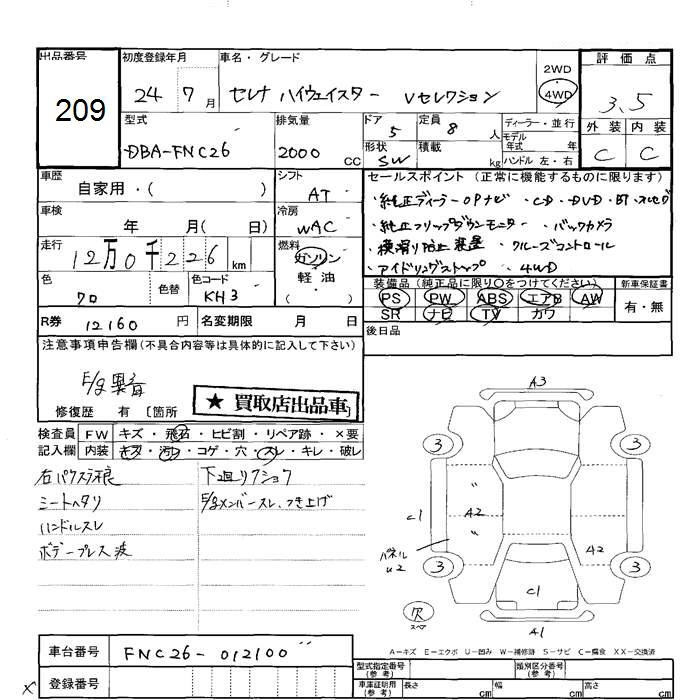 出品番号 初度登録年月 車名・グレード 2WD 評価点
209 24 7月 セレナ ハイウェイスター Vセレクション 4WD 3.5
型式 排気量 ドア 定員 ディーラー・並行 外装 内装
DBA-FNC26 2000 CC 5 8 人 モデル年式 年 C C
形状 SW 積載 kg ハンドル 左・右
車歴 シフト セールスポイント (正常に機能するものに限ります)
自家用・( ) AT ・純正ディーラーOPナビ ・CD・DVD・BT・フルセグ
車検 冷房 ・純正フリップダウンモニター ・バックカメラ
年 月( 日) WAC ・横滑り防止装置 ・クルーズコントロール
走行 燃料 ・アイドリングストップ ・4WD
12万0千226 km ガソリン
軽・油 装備品 (純正品に限り○をつけてください) 新車保証書
色 色替 色コード PS PW ABS エアB AW 有・無
クロ KH3 SR ナビ TV カワ
R券 12160 円 名変期限 月 日 後日品
注意事項申告欄(不具合内容等は具体的に記入して下さい)
★買取店出品車
修復歴 有 〔箇所
検査員 FW キズ・飛石・ヒビ割・リペア跡・×要
記入欄 内装 キズ・汚レ・コゲ・穴・スレ・キレ・破レ
シートヘタリ
ハンドルスレ
ボデープレス波
A3
3 3
C1 A2 A2
パネルU2
3 3
C1
穴 スペア A1
A-キズ E-エクボ U-凹み W-補修跡 S-サビ C-腐食 XX-交換済
車台番号 FNC26-012100
型式指定番号(参考) 類別区分番号(参考)
登録番号 車庫証明用(参考) 長さ cm 幅 cm 高さ cm